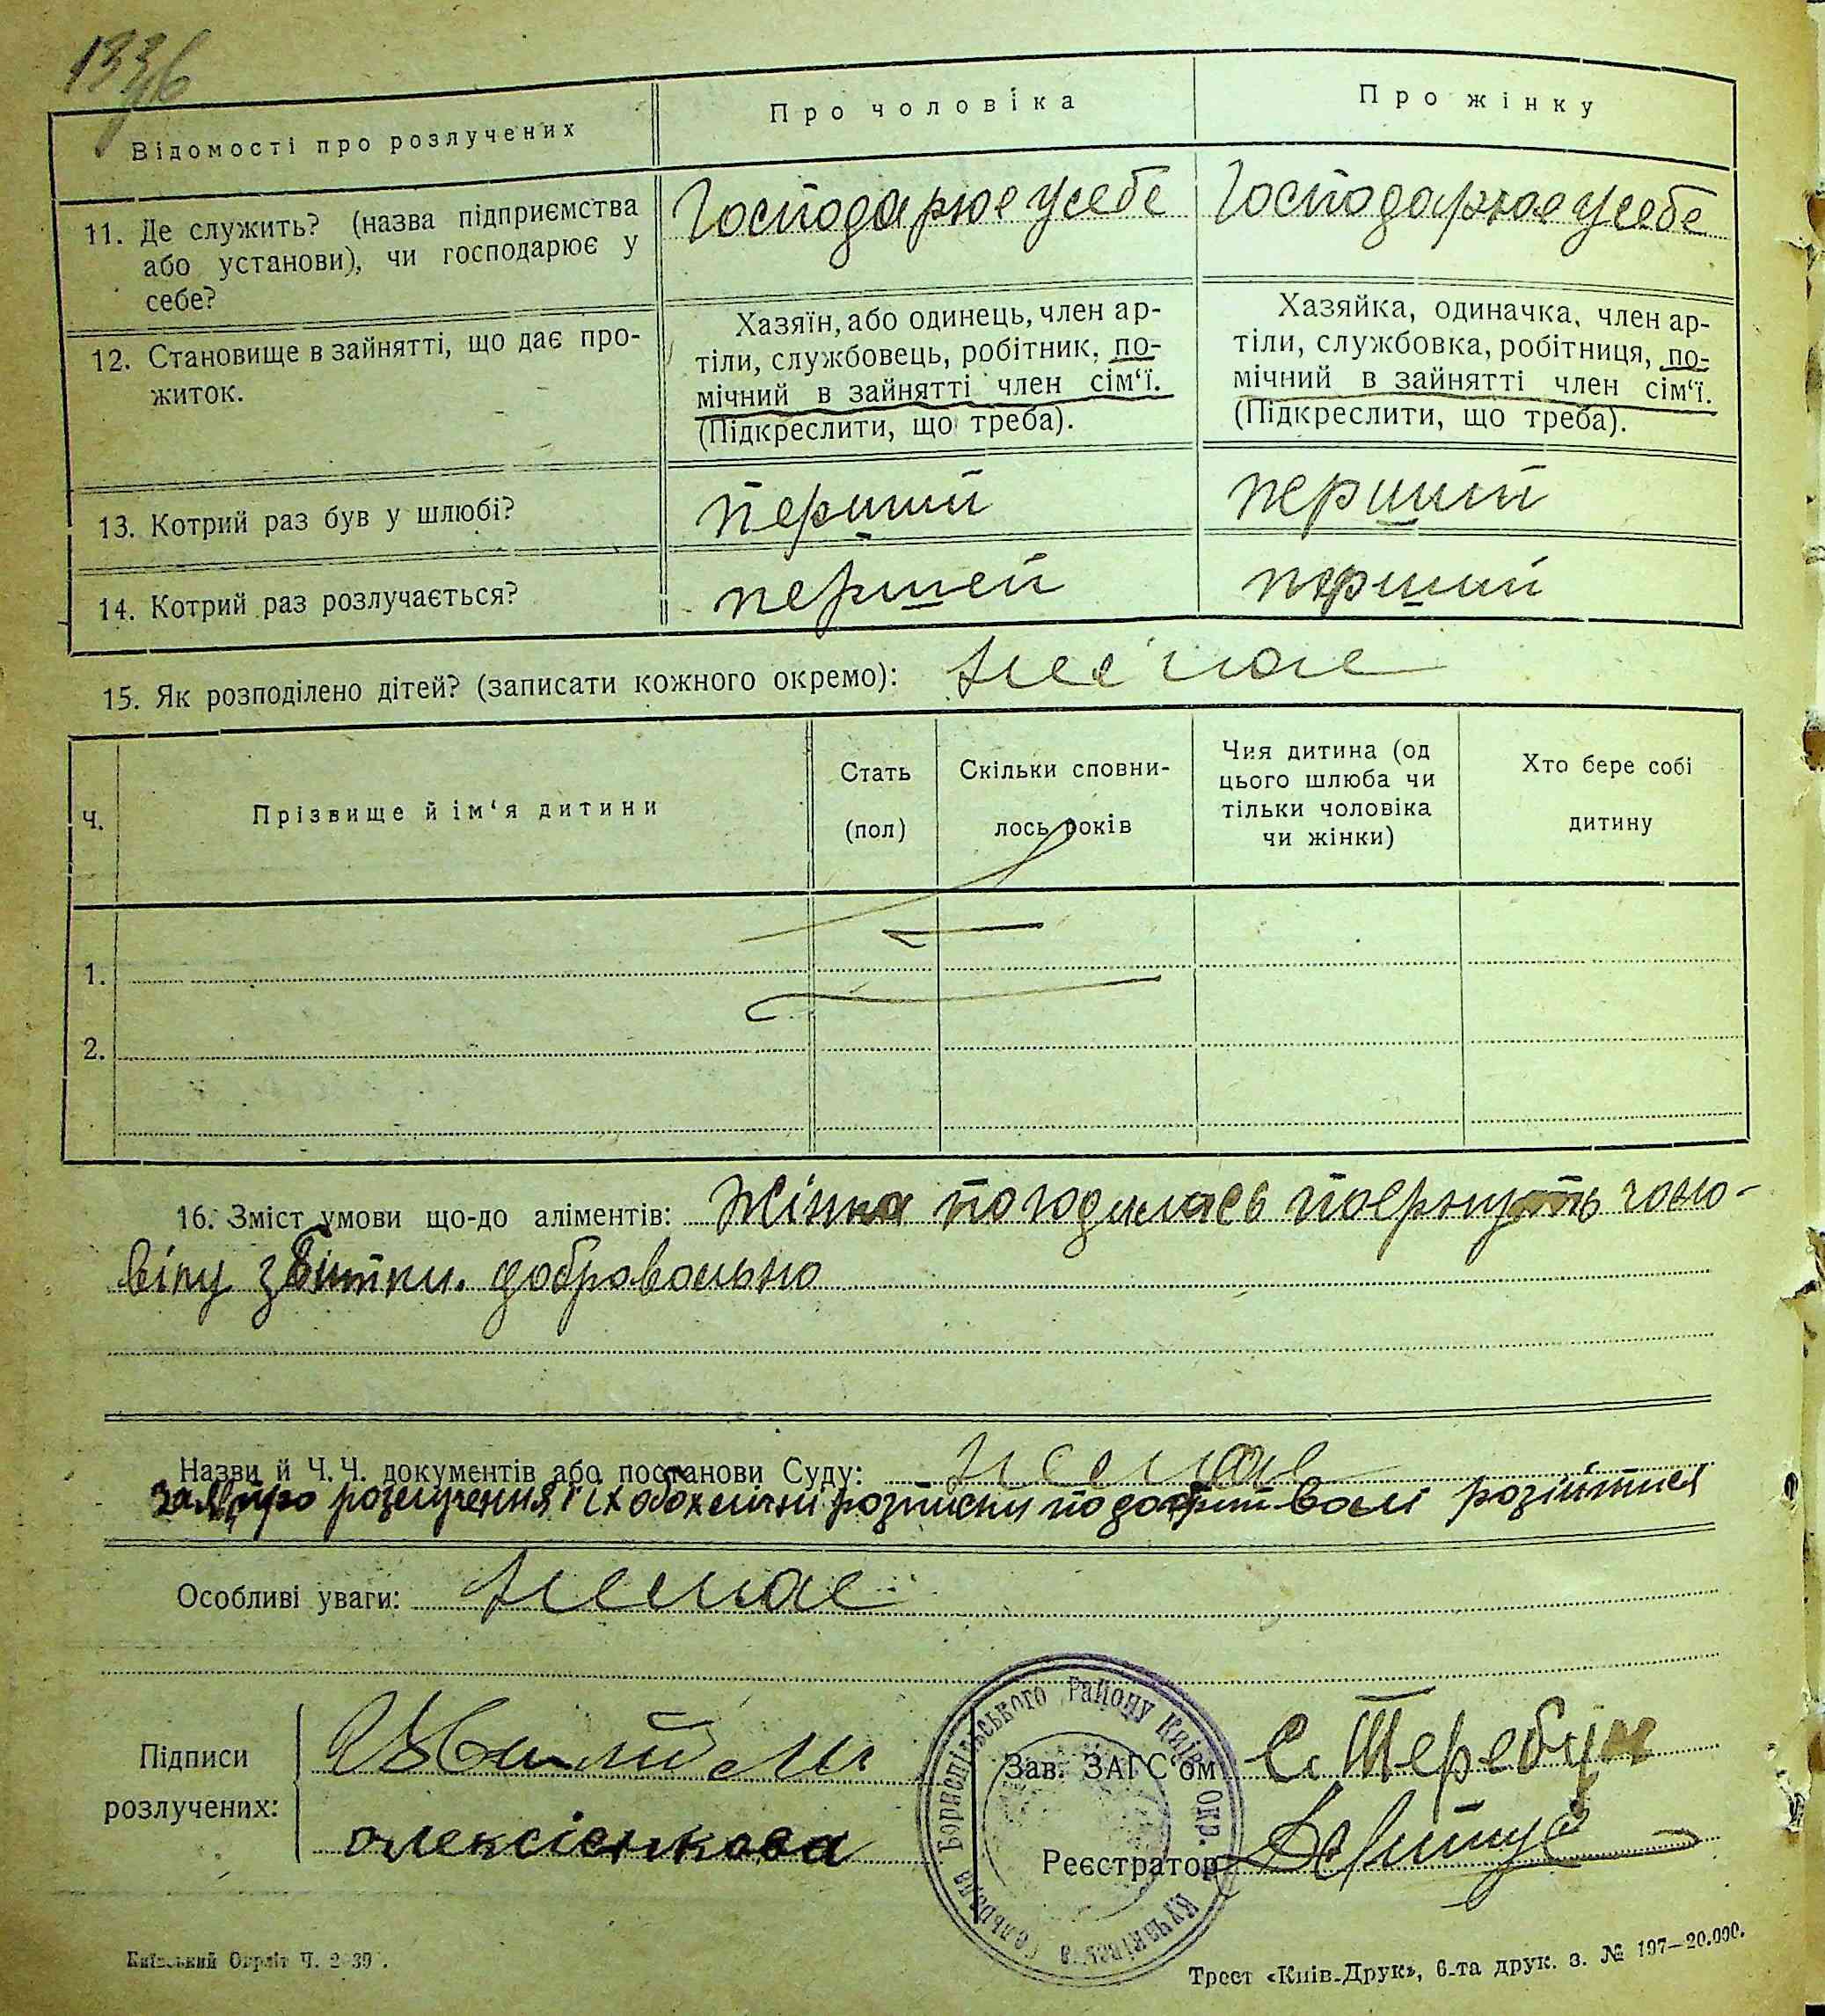 1336
Відомості про розлучених
Про чоловіка
Про жінку
11. Де служить? (назва підприємства
або установи), чи господарює у
себе?
Господарює у себе
Господарює у себе
12. Становище в зайнятті, що дає про-
житок.
Хазяїн, або одинець, член ар-
тіли, службовець, робітник, по-
мічний в зайнятті член сім‘ї.
(Підкреслити, що треба).
Хазяйка, одиначка, член ар-
тіли, службовка, робітниця, по-
мічний в зайнятті член сім‘ї.
(Підкреслити, що треба).
13. Котрий раз був у шлюбі?
перший
перший
14. Котрий раз розлучається?
першей
перший
15. Як розподілено дітей? (записати кожного окремо): немає
Ч.
Прізвище й ім‘я дитини
Стать
(пол)
Скільки сповни-
лось років
Чия дитина (од
цього шлюба чи
тільки чоловіка
чи жінки)
Хто бере собі
дитину
1.
2.
16. Зміст умови що-до аліментів: Жінка погодилась повернуть чоло-
віку збитки. добровольно
Назви й Ч. Ч. документів або постанови Суду: немає
про розлучення і їх обох розписки волі розійтися
Особливі уваги: немає
Підписи
розлучених:
олексієнкова
Зав. ЗАГС‘ом С. Теребун
Реєстратор
Кучаківська Сольрада Бориспільського Району Київ. Окр.
Київський Окрліт Ч. 2 39.
Трест «Київ-Друк», 6-та друк. з. № 197—20.000.